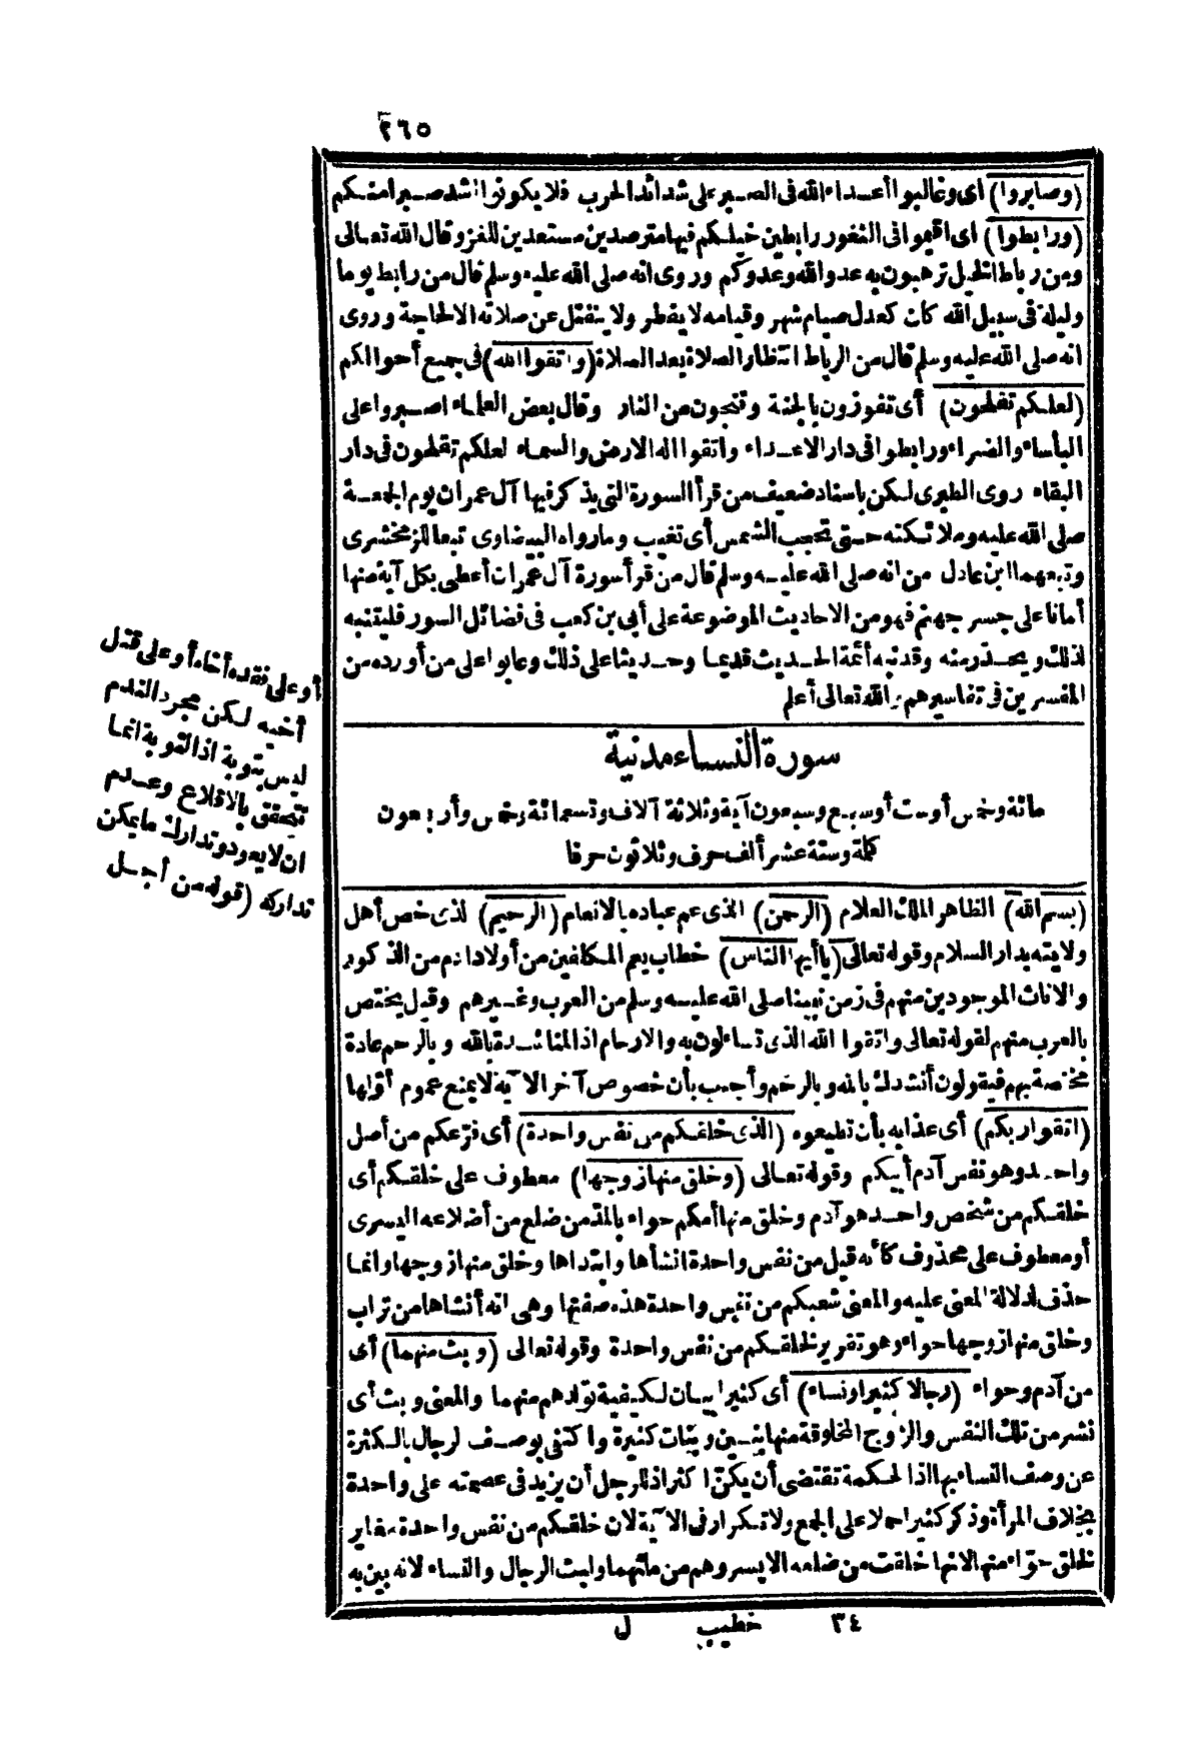 ٢٦٥
(وصابروا) أى وغالبوا أعداء الله فى الصبر على شدائد الحرب فلا يكونوا أشد صبرا منكم
(ورابطوا) اى اقيموا فى الثغور رابطين خيلكم فيها مترصدين مستعدين للغزو قال الله تعالى
ومن رباط الخيل ترهبون به عدوالله وعدوكم وروى انه صلى الله عليه وسلم قال من رابط يوما
وليلة فى سبيل الله كان كعدل صيام شهر وقيامه لا يفطر ولا ينفتل عن صلاته الا لحاجة وروى
انه صلى الله عليه وسلم قال من الرباط انتظار الصلاة بعد الصلاة (واتقوا الله) فى جميع أحوالكم
(لعلكم تفلحون) أى تفوزون بالجنة وتنجون من النار وقال بعض العلماء اصبروا على
البأساء والضراء ورابطوا فى دار الاعداء واتقوا اله الارض والسماء لعلكم تفلحون فى دار
البقاء روى الطبرى لكن باسناد ضعيف من قرأ السورة التى يذكر فيها آل عمران يوم الجمعة
صلى الله عليه وملائكته حتى تحجب الشمس أى تغيب وما رواه البيضاوى تبعا للزمخشرى
وتبعهما ابن عادل من انه صلى الله عليه وسلم قال من قرأ سورة آل عمران أعطى بكل آية منها
أمانا على جسر جهنم فهو من الاحاديث الموضوعة على أبى بن كعب فى فضائل السور فليتنبه
لذلك ويحذر منه وقد نبه أئمة الحديث قديما وحديثا على ذلك وعابوا على من أورده من
المفسرين فى تفاسيرهم والله تعالى أعلم
سورة النساء مدنية
مائة وخمس أوست أوسبع وسبعون آية وثلاثة آلاف وتسعمائة وخمس وأربعون
كلمة وستة عشر ألف حرف وثلاثون حرفا
(بسم الله) الظاهر الملك العلام (الرحمن) الذى عم عباده بالانعام (الرحيم) لذى خص أهل
ولايته بدار السلام وقوله تعالى (ياأيها الناس) خطاب يعم المكلفين من أولاد آدم من الذكور
والاناث الموجودين منهم فى زمن نبينا صلى الله عليه وسلم من العرب وغيرهم وقيل يختص
بالعرب منهم لقوله تعالى واتقوا الله الذى تساءلون به والارحام اذ المناشدة بالله وبالرحم عادة
مختصة بهم فيقولون أنشدك بالله وبالرحم وأجيب بأن خصوص آخر الآية لا يمنع عموم أولها
(اتقوا ربكم) أى عذابه بأن تطيعوه (الذى خلقكم من نفس واحدة) أى فرّعكم من أصل
واحد وهو نفس آدم أبيكم وقوله تعالى (وخلق منها زوجها) معطوف على خلقكم أى
خلقكم من شخص واحد هو آدم وخلق منها أمكم حواء بالمدّ من ضلع من أضلاعه اليسرى
أو معطوف على محذوف كأنه قيل من نفس واحدة انشأها وابتداها وخلق منها زوجها وانما
حذف لدلالة المعنى عليه والمعنى شعبكم من نفس واحدة هذه صفتها وهى انه أنشاها من تراب
وخلق منها زوجها حواء وهو تقرير لخلقكم من نفس واحدة وقوله تعالى (وبث منهما) أى
من آدم وحواء (رجالا كثيرا ونساء) أى كثيرا بيان لكيفية تولدهم منهما والمعنى وبث أى
نشر من تلك النفس والزوج المخلوقة منها بنين وبنات كثيرة واكتفى بوصف لرجال بالكثرة
عن وصف النساء بها اذ الحكمة تقتضى أن يكنّ اكثر اذ للرجل أن يزيد فى عصمته على واحدة
بخلاف المرأة وذكر كثيرا حملا على الجمع ولا تكرار فى الآية لان خلقكم من نفس واحدة مغاير
لخلق حوّاء منها لانها خلقت من ضلعه الايسر وهم من مائهما ولبث الرجال والنساء لانه بين به
٣٤ خطيب ل
أو على فقده أخاه أو على قتل
أخيه لكن مجرد الندم
ليس بتوبة اذ التوبة انما
تتحقق بالاقلاع وعدم
ان لا يعود وتدارك ما يمكن
تداركه (قوله من أجل